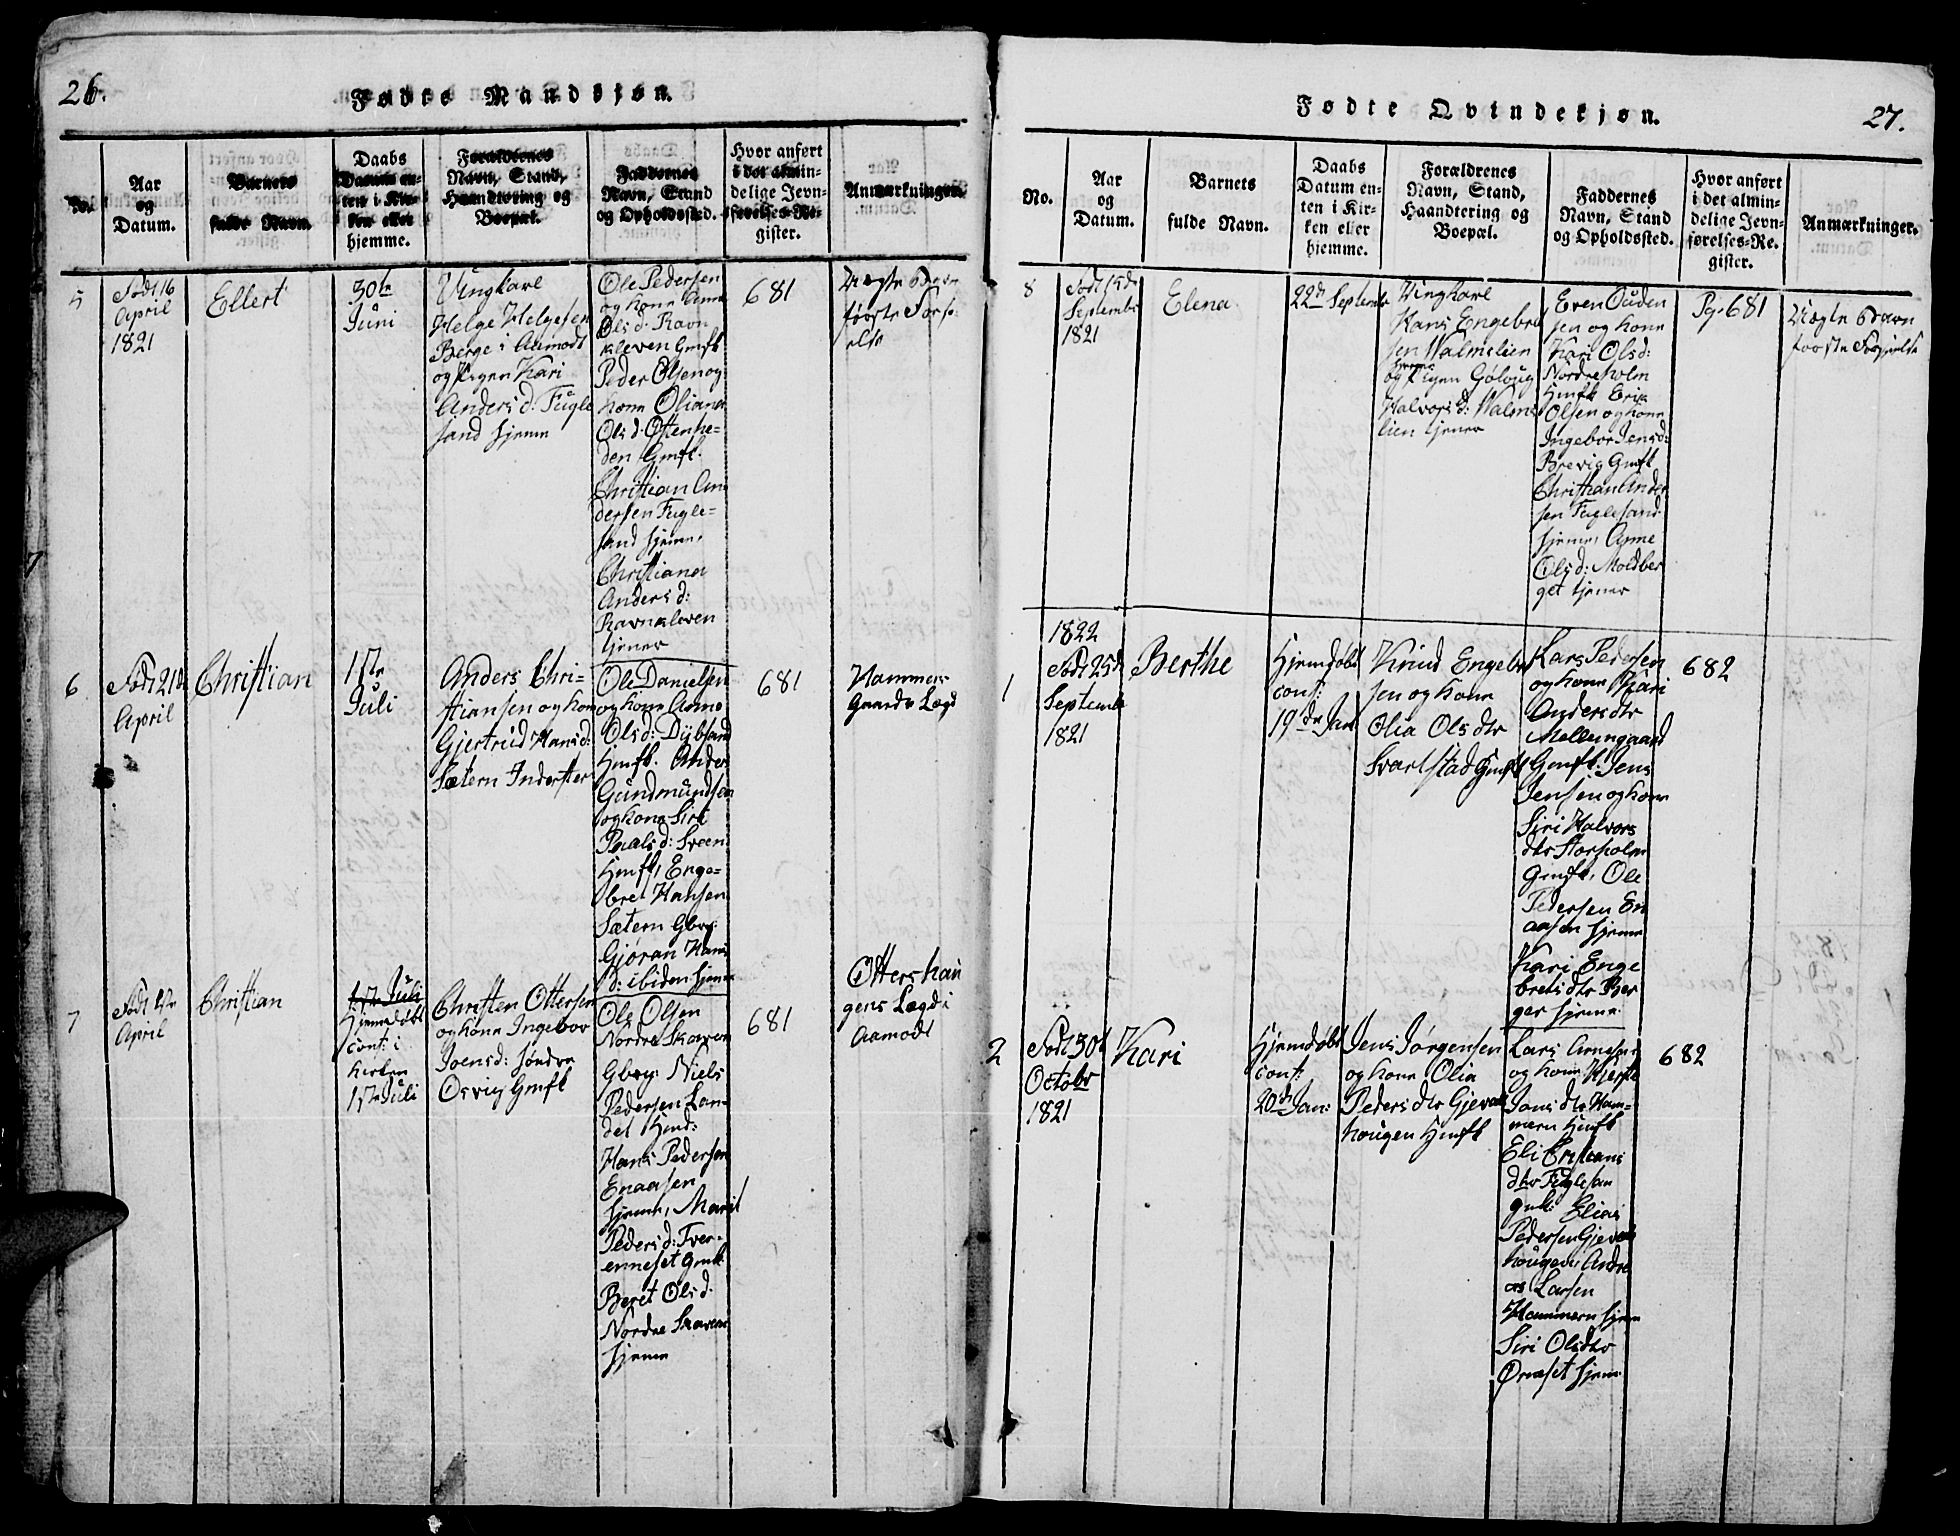 26.
Fødte Mandkjøn.
No.
Aar
og
Datum.
Barnets
fulde Navn.
Daabs
Datum en-
ten i Kir-
ken eller
hjemme.
Forældrenes
Navn, Stand,
Haandtering og
Boepæl.
Faddernes
Navn, Stand
og Opholdssted.
Hvor anført
i det almin-
delige Jevn-
førelses-Re-
gister.
Anmærkninger.
5
Født 16
April
1821
Ellert
30te
Juni
Ungkarl
Helge Helgesen
Berge i Aamodt
og Pigen Kari
Andersd: Fugle
sand hjeme
Ole Pedersen
og kone Anne
Olsd: Ravn
kleven Gmfk
Peder Olsen og
kone Oliana
Olsd: Ostenhe=
den Gmfk:
Christian An
dersen Fugle=
sand hjeme,
Christiana
Andersd:
Ravnkleven
tjener
681
Uægte Barn
første Forse
else
6
Født 21de
April
Christian
1ste
Juli
Anders Chri=
stiansen og kone
Gjertrud Hansd:
Sætern Inderster
Ole Danielsen
og kone Anne
Olsd: Dybsand
Hmfk. Anders
Gundmundsen
og kone Siri
Paalsd: Sveen
Hmfk, Enge=
bret Hansen
Sætern Gbrs:
Gjøran Hans
D: ibiden hjeme
681
Hammer
Gaards Lægd
7
Født 1ste
April
Christian
1ste Juli
Hjemedøbt
conf: i
kirken
1ste Juli
Christen Ottersen
og kone Ingebor
Joensd: søndre
Osvig Gmfk
Ole Olsen
Nordre Skaven
Gbry: Niels
Pedersen Lan=
det Hmd:
Hans Pedersen
Enaasen
hjeme, Marit
Pedersd: Tver=
enneset Gmk
Beret Olsd:
Nordre Skaven
hjeme
681
Ottershau
gens Lægd i
Aamodt
27.
Fødte Qvindekjøn.
No.
Aar
og
Datum.
Barnets
fulde Navn.
Daabs
Datum en-
ten i Kir-
ken eller
hjemme.
Forældrenes
Navn, Stand,
Haandtering og
Boepæl.
Faddernes
Navn, Stand
og Opholdssted.
Hvor anført
i det almin-
delige Jevn-
førelses-Re-
gister.
Anmærkninger.
8
Født 15de
Septembr
1821
Elena
22de Septembr
Ungkarl
Hans Engebret
sen Malmelien
hjeme
og Pigen Gøloug
Halvorsd: Malme
lien tjener
Even Ouden
sen og kone
Kari Olsd:
Nordreholm
Hmfk Erik
Olsen og kone
Ingebor Jensd:
Brevig Gmfk
Christian Ander
sen Fuglesand
hjeme, Anne
Olsd: Moldber
get tjener
Pg. 681
Uægte Barn
første Forseelse
1822
1
Født 25de
Septembr
1821
Berthe
Hjemdøbt
conf:
19de Jan
Knud Engebret
sen og kone
Olia Olsdtr
Svartstad Gmfk
Lars Pedersen
og kone Kari
Andersdtr
Mellemgaard
Gmfk: Jens
Jensen og kone
Siri Halvors
dtr Storholm
Gmfk, Ole
Pedersen En
aasen hjeme
Kari Enge
bretsdtr Ber
ger hjeme
682
2
Født 30te
Octobr
1821
Kari
Hjemdøbt
conf:
20de Jan:
Jens Jørgensen
og kone Olia
Pedersdtr Gjeval
hougen Hmfk
Lars Arnesen
og kone Kjersti
Jonsdtr Ham=
mern Hmfk
Eli Cristians
dtr Fuglesan
gmk: Elias
Pedersen Gjeval
hougen, Andre
as Larsen
Hammern hjem
Siri Olsdtr
Ørnæset hjem
682